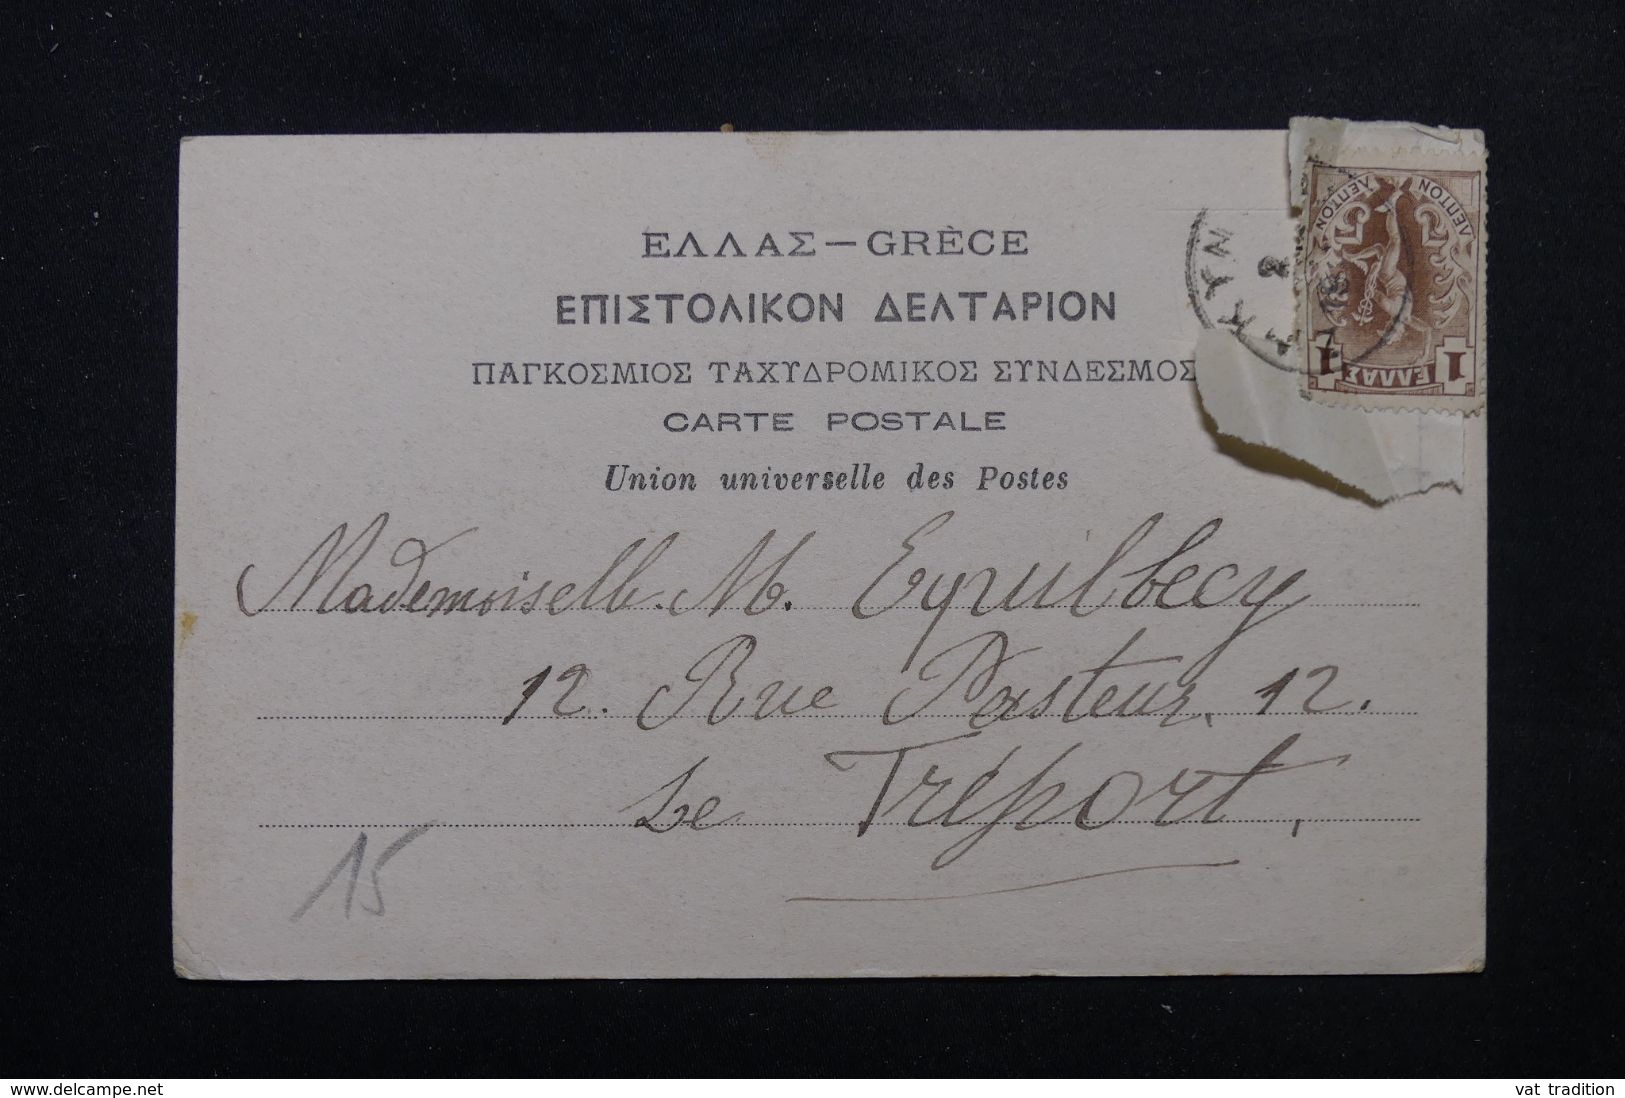 ΕΛΛΑΣ — GRÈCE
ΕΠΙΣΤΟΛΙΚΟΝ ΔΕΛΤΑΡΙΟΝ
ΠΑΓΚΟΣΜΙΟΣ ΤΑΧΥΔΡΟΜΙΚΟΣ ΣΥΝΔΕΣΜΟΣ
CARTE POSTALE
Union universelle des Postes
ΛΕΠΤΟΝ ΛΕΠΤΟΝ
ΛΕΠΤΟΝ ΛΕΠΤΟΝ
1 ΕΛΛΑΣ 1
ΚΥΝ
2
Mademoiselle. M. Eyquilbecy
12. Rue Pasteur. 12.
Le Tréport,
15
www.delcampe.net
vat tradition